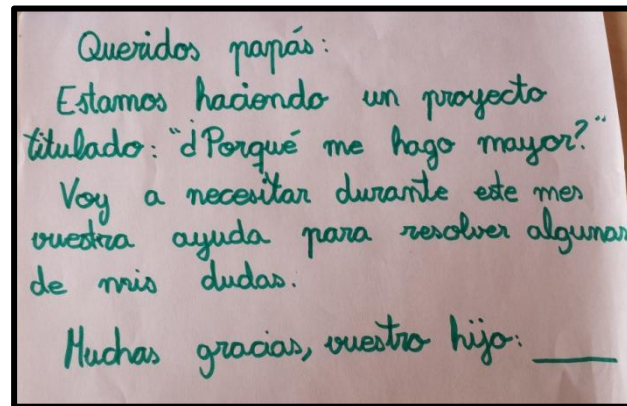 Queridos papás:
Estamos haciendo un proyecto
titulado: "¿Porqué me hago mayor?"
Voy a necesitar durante este mes
vuestra ayuda para resolver algunas
de mis dudas.
Muchas gracias, vuestro hijo: ______